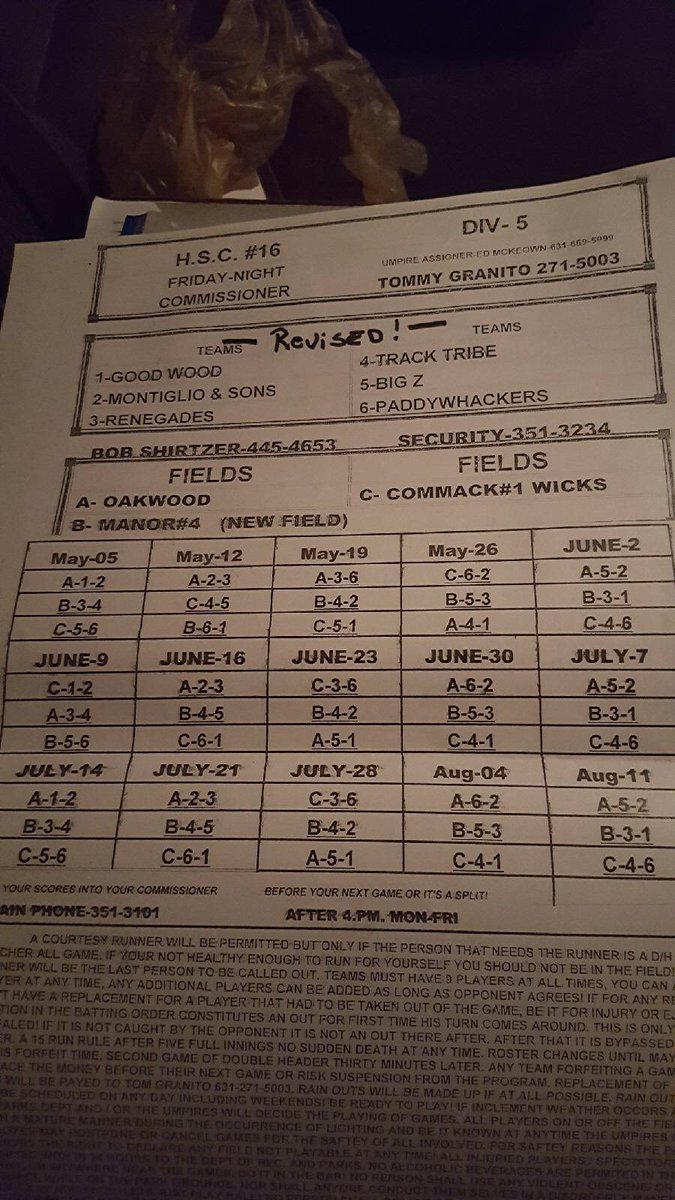 H.S.C. #16
FRIDAY-NIGHT
COMMISSIONER
DIV- 5
UMPIRE ASSIGNER-ED MCKEOWN-631-669-5999
TOMMY GRANITO 271-5003
Revised!
TEAMS
1-GOOD WOOD
2-MONTIGLIO & SONS
3-RENEGADES
TEAMS
4-TRACK TRIBE
5-BIG Z
6-PADDYWHACKERS
BOB SHIRTZER-445-4653 SECURITY-351-3234
FIELDS
A- OAKWOOD
B- MANOR#4 (NEW FIELD)
FIELDS
C- COMMACK#1 WICKS
May-05 May-12 May-19 May-26 JUNE-2
A-1-2 A-2-3 A-3-6 C-6-2 A-5-2
B-3-4 C-4-5 B-4-2 B-5-3 B-3-1
C-5-6 B-6-1 C-5-1 A-4-1 C-4-6
JUNE-9 JUNE-16 JUNE-23 JUNE-30 JULY-7
C-1-2 A-2-3 C-3-6 A-6-2 A-5-2
A-3-4 B-4-5 B-4-2 B-5-3 B-3-1
B-5-6 C-6-1 A-5-1 C-4-1 C-4-6
JULY-14 JULY-21 JULY-28 Aug-04 Aug-11
A-1-2 A-2-3 C-3-6 A-6-2 A-5-2
B-3-4 B-4-5 B-4-2 B-5-3 B-3-1
C-5-6 C-6-1 A-5-1 C-4-1 C-4-6
YOUR SCORES INTO YOUR COMMISSIONER BEFORE YOUR NEXT GAME OR IT'S A SPLIT!
AIN PHONE-351-3101 AFTER 4.PM. MON-FRI
A COURTESY RUNNER WILL BE PERMITTED BUT ONLY IF THE PERSON THAT NEEDS THE RUNNER IS A D/H
CHER ALL GAME. IF YOUR NOT HEALTHY ENOUGH TO RUN FOR YOURSELF YOU SHOULD NOT BE IN THE FIELD!
NER WILL BE THE LAST PERSON TO BE CALLED OUT. TEAMS MUST HAVE 9 PLAYERS AT ALL TIMES, YOU CAN
YER AT ANY TIME, ANY ADDITIONAL PLAYERS CAN BE ADDED AS LONG AS OPPONENT AGREES! IF FOR ANY RE
T HAVE A REPLACEMENT FOR A PLAYER THAT HAD TO BE TAKEN OUT OF THE GAME, BE IT FOR INJURY OR EJ
TION IN THE BATTING ORDER CONSTITUTES AN OUT FOR FIRST TIME HIS TURN COMES AROUND. THIS IS ONLY
EALED! IF IT IS NOT CAUGHT BY THE OPPONENT IT IS NOT AN OUT THERE AFTER. AFTER THAT IT IS BYPASSED
ER. A 15 RUN RULE AFTER FIVE FULL INNINGS NO SUDDEN DEATH AT ANY TIME. ROSTER CHANGES UNTIL MAY
IS FORFEIT TIME. SECOND GAME OF DOUBLE HEADER THIRTY MINUTES LATER. ANY TEAM FORFEITING A GAM
ACE THE MONEY BEFORE THEIR NEXT GAME OR RISK SUSPENSION FROM THE PROGRAM. REPLACEMENT OF
WILL BE PAYED TO TOM GRANITO 631-271-5003. RAIN OUTS WILL BE MADE UP IF AT ALL POSSIBLE. RAIN OUT
BE SCHEDULED ON ANY DAY INCLUDING WEEKENDS! BE READY TO PLAY! IF INCLEMENT WEATHER OCCURS
PARKS DEPT AND / OR THE UMPIRES WILL DECIDE THE PLAYING OF GAMES. ALL PLAYERS ON OR OFF THE FIE
A MATURE MANNER DURING THE OCCURRENCE OF LIGHTING AND BE IT KNOWN AT ANYTIME THE UMPIRES
POSTPONE OR CANCEL GAMES FOR THE SAFTEY OF ALL INVOLVED. FOR SAFTEY REASONS THE
DECLARE ANY FIELD NOT PLAYABLE AT ANY TIME! ALL INJURED PLAYERS
IN 24 HOURS TO THE DEPT OF REC. AND PARKS. NO ALCOHOLIC BEVERAGES ARE PERMITTED IN